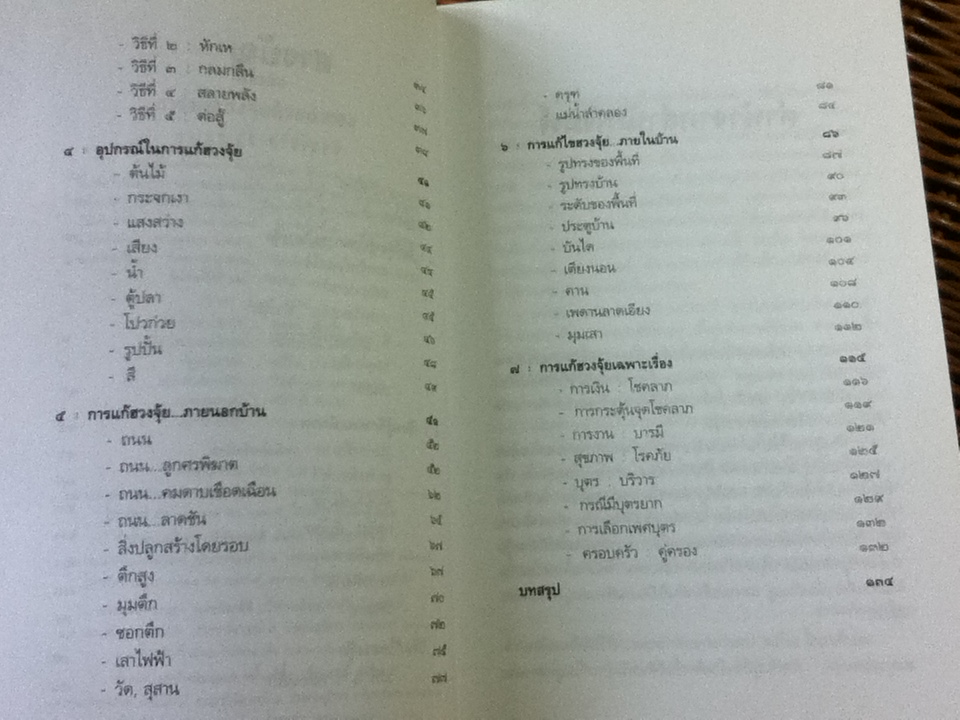 - วิธีที่ ๒ : หักเห ๓๔
- วิธีที่ ๓ : กลมกลืน ๓๖
- วิธีที่ ๔ : สลายพลัง ๓๗
- วิธีที่ ๕ : ต่อสู้ ๓๘
๔ : อุปกรณ์ในการแก้ฮวงจุ้ย ๔๑
- ต้นไม้ ๔๑
- กระจกเงา ๔๒
- แสงสว่าง ๔๔
- เสียง ๔๔
- น้ำ ๔๕
- ตู้ปลา ๔๕
- โปวก่วย ๔๖
- รูปปั้น ๔๘
- สี ๔๙
๕ : การแก้ฮวงจุ้ย...ภายนอกบ้าน ๕๑
- ถนน ๕๒
- ถนน...ลูกศรพิฆาต ๕๒
- ถนน...คมดาบเชือดเฉือน ๖๒
- ถนน...ลาดชัน ๖๕
- สิ่งปลูกสร้างโดยรอบ ๖๗
- ตึกสูง ๖๗
- มุมตึก ๗๐
- ซอกตึก ๗๒
- เสาไฟฟ้า ๗๕
- วัด, สุสาน ๗๗
- ครุฑ ๘๑
- แม่น้ำลำคลอง ๘๔
๖ : การแก้ไขฮวงจุ้ย...ภายในบ้าน ๘๖
- รูปทรงของพื้นที่ ๘๗
- รูปทรงบ้าน ๙๐
- ระดับของพื้นที่ ๙๓
- ประตูบ้าน ๙๖
- บันได ๑๐๑
- เตียงนอน ๑๐๔
- คาน ๑๐๘
- เพดานลาดเอียง ๑๑๐
- มุมเสา ๑๑๒
๗ : การแก้ฮวงจุ้ยเฉพาะเรื่อง ๑๑๕
- การเงิน : โชคลาภ ๑๑๖
- การกระตุ้นจุดโชคลาภ ๑๑๙
- การงาน : บารมี ๑๒๑
- สุขภาพ : โรคภัย ๑๒๕
- บุตร : บริวาร ๑๒๗
- กรณีมีบุตรยาก ๑๒๙
- การเลือกเพศบุตร ๑๓๒
- ครอบครัว คู่ครอง ๑๓๒
บทสรุป ๑๓๔